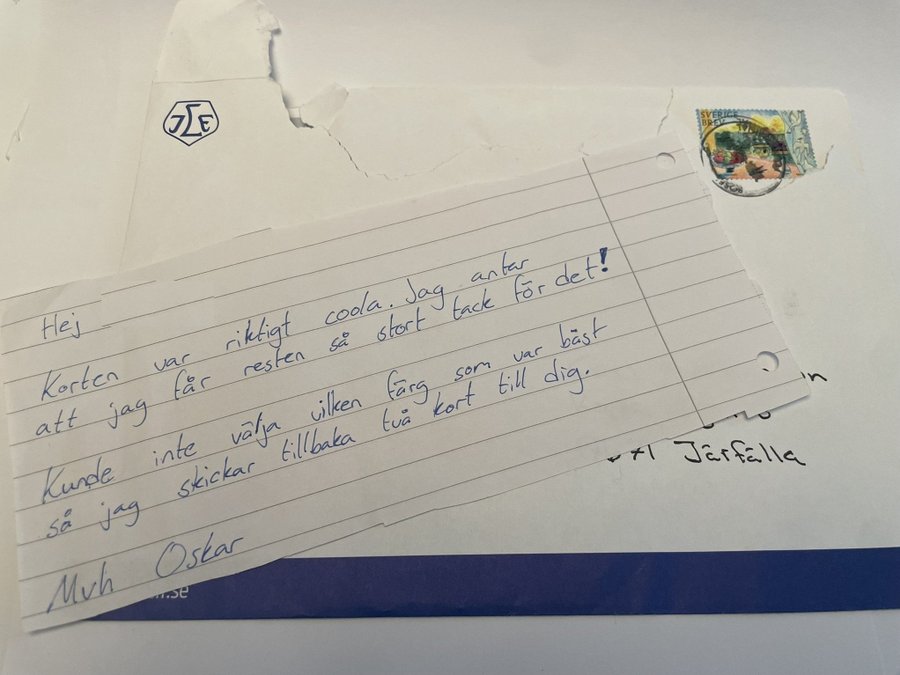 JLE
SVERIGE
BREV
Hej
Korten var riktigt coola. Jag antar
att jag får resten så stort tack för det!
Kunde inte välja vilken färg som var bäst
så jag skickar tillbaka två kort till dig.
Mvh Oskar
Järfälla
.se